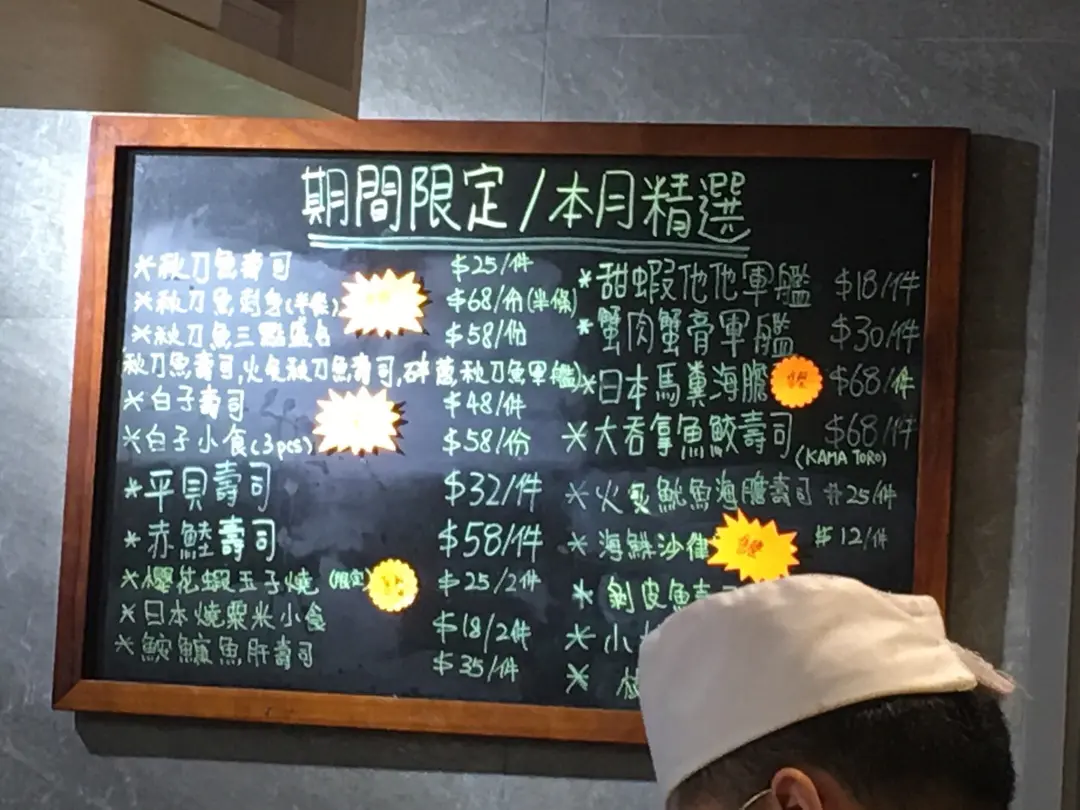 期間限定/本月精選
*秋刀魚壽司 $25/件
*秋刀魚刺身(半條) $68/份(半條)
*秋刀魚三點盛合 $58/份
秋刀魚壽司,火炙秋刀魚壽司,碎蔥秋刀魚軍艦)
*白子壽司 $48/件
*白子小食(3pcs) $58/份
*平貝壽司 $32/件
*赤鯥壽司 $58/件
*櫻花蝦玉子燒 (限定 $25/2件
*日本燒粟米小食 $18/2件
*鮟鱇魚肝壽司 $35/件
*甜蝦他他軍艦 $18/件
*蟹肉蟹膏軍艦 $30/件
*日本馬糞海膽 $68/件
*大吞拿魚鮫壽司 $68/件
(KAMA TORO)
*火炙魷魚海膽壽司 $25/件
*海鮮沙律 $12/件
*剝皮魚壽
*小
*